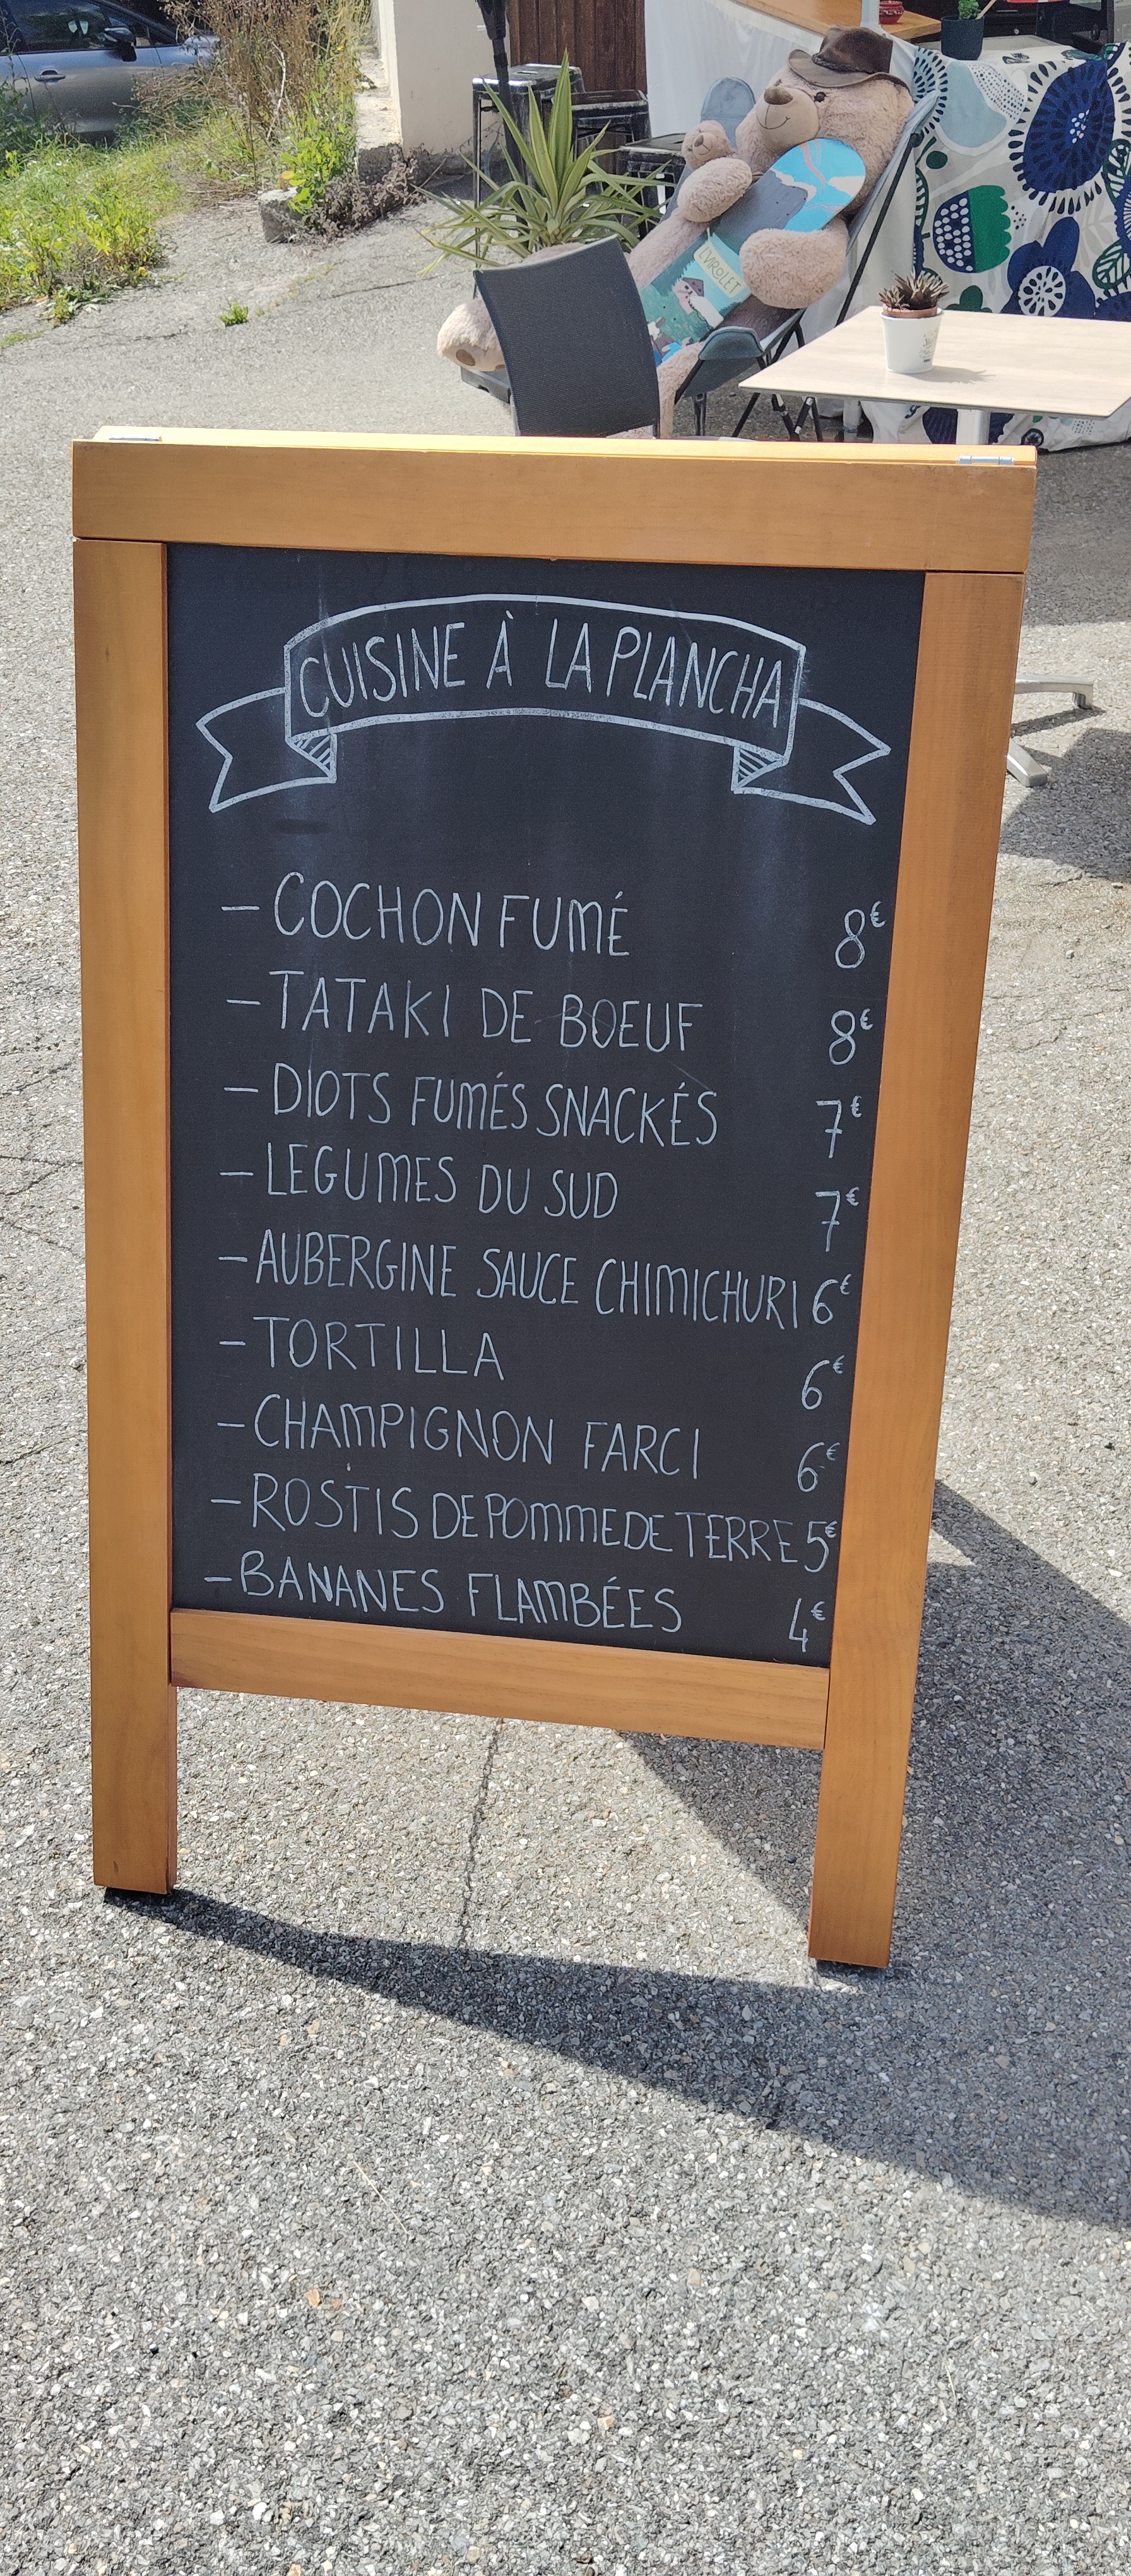 CVROLET
CUISINE À LA PLANCHA
- COCHON FUMÉ 8€
- TATAKI DE BOEUF 8€
- DIOTS FUMÉS SNACKÉS 7€
- LEGUMES DU SUD 7€
- AUBERGINE SAUCE CHIMICHURI 6€
- TORTILLA 6€
- CHAMPIGNON FARCI 6€
- ROSTIS DE POMME DE TERRE 5€
- BANANES FLAMBÉES 4€